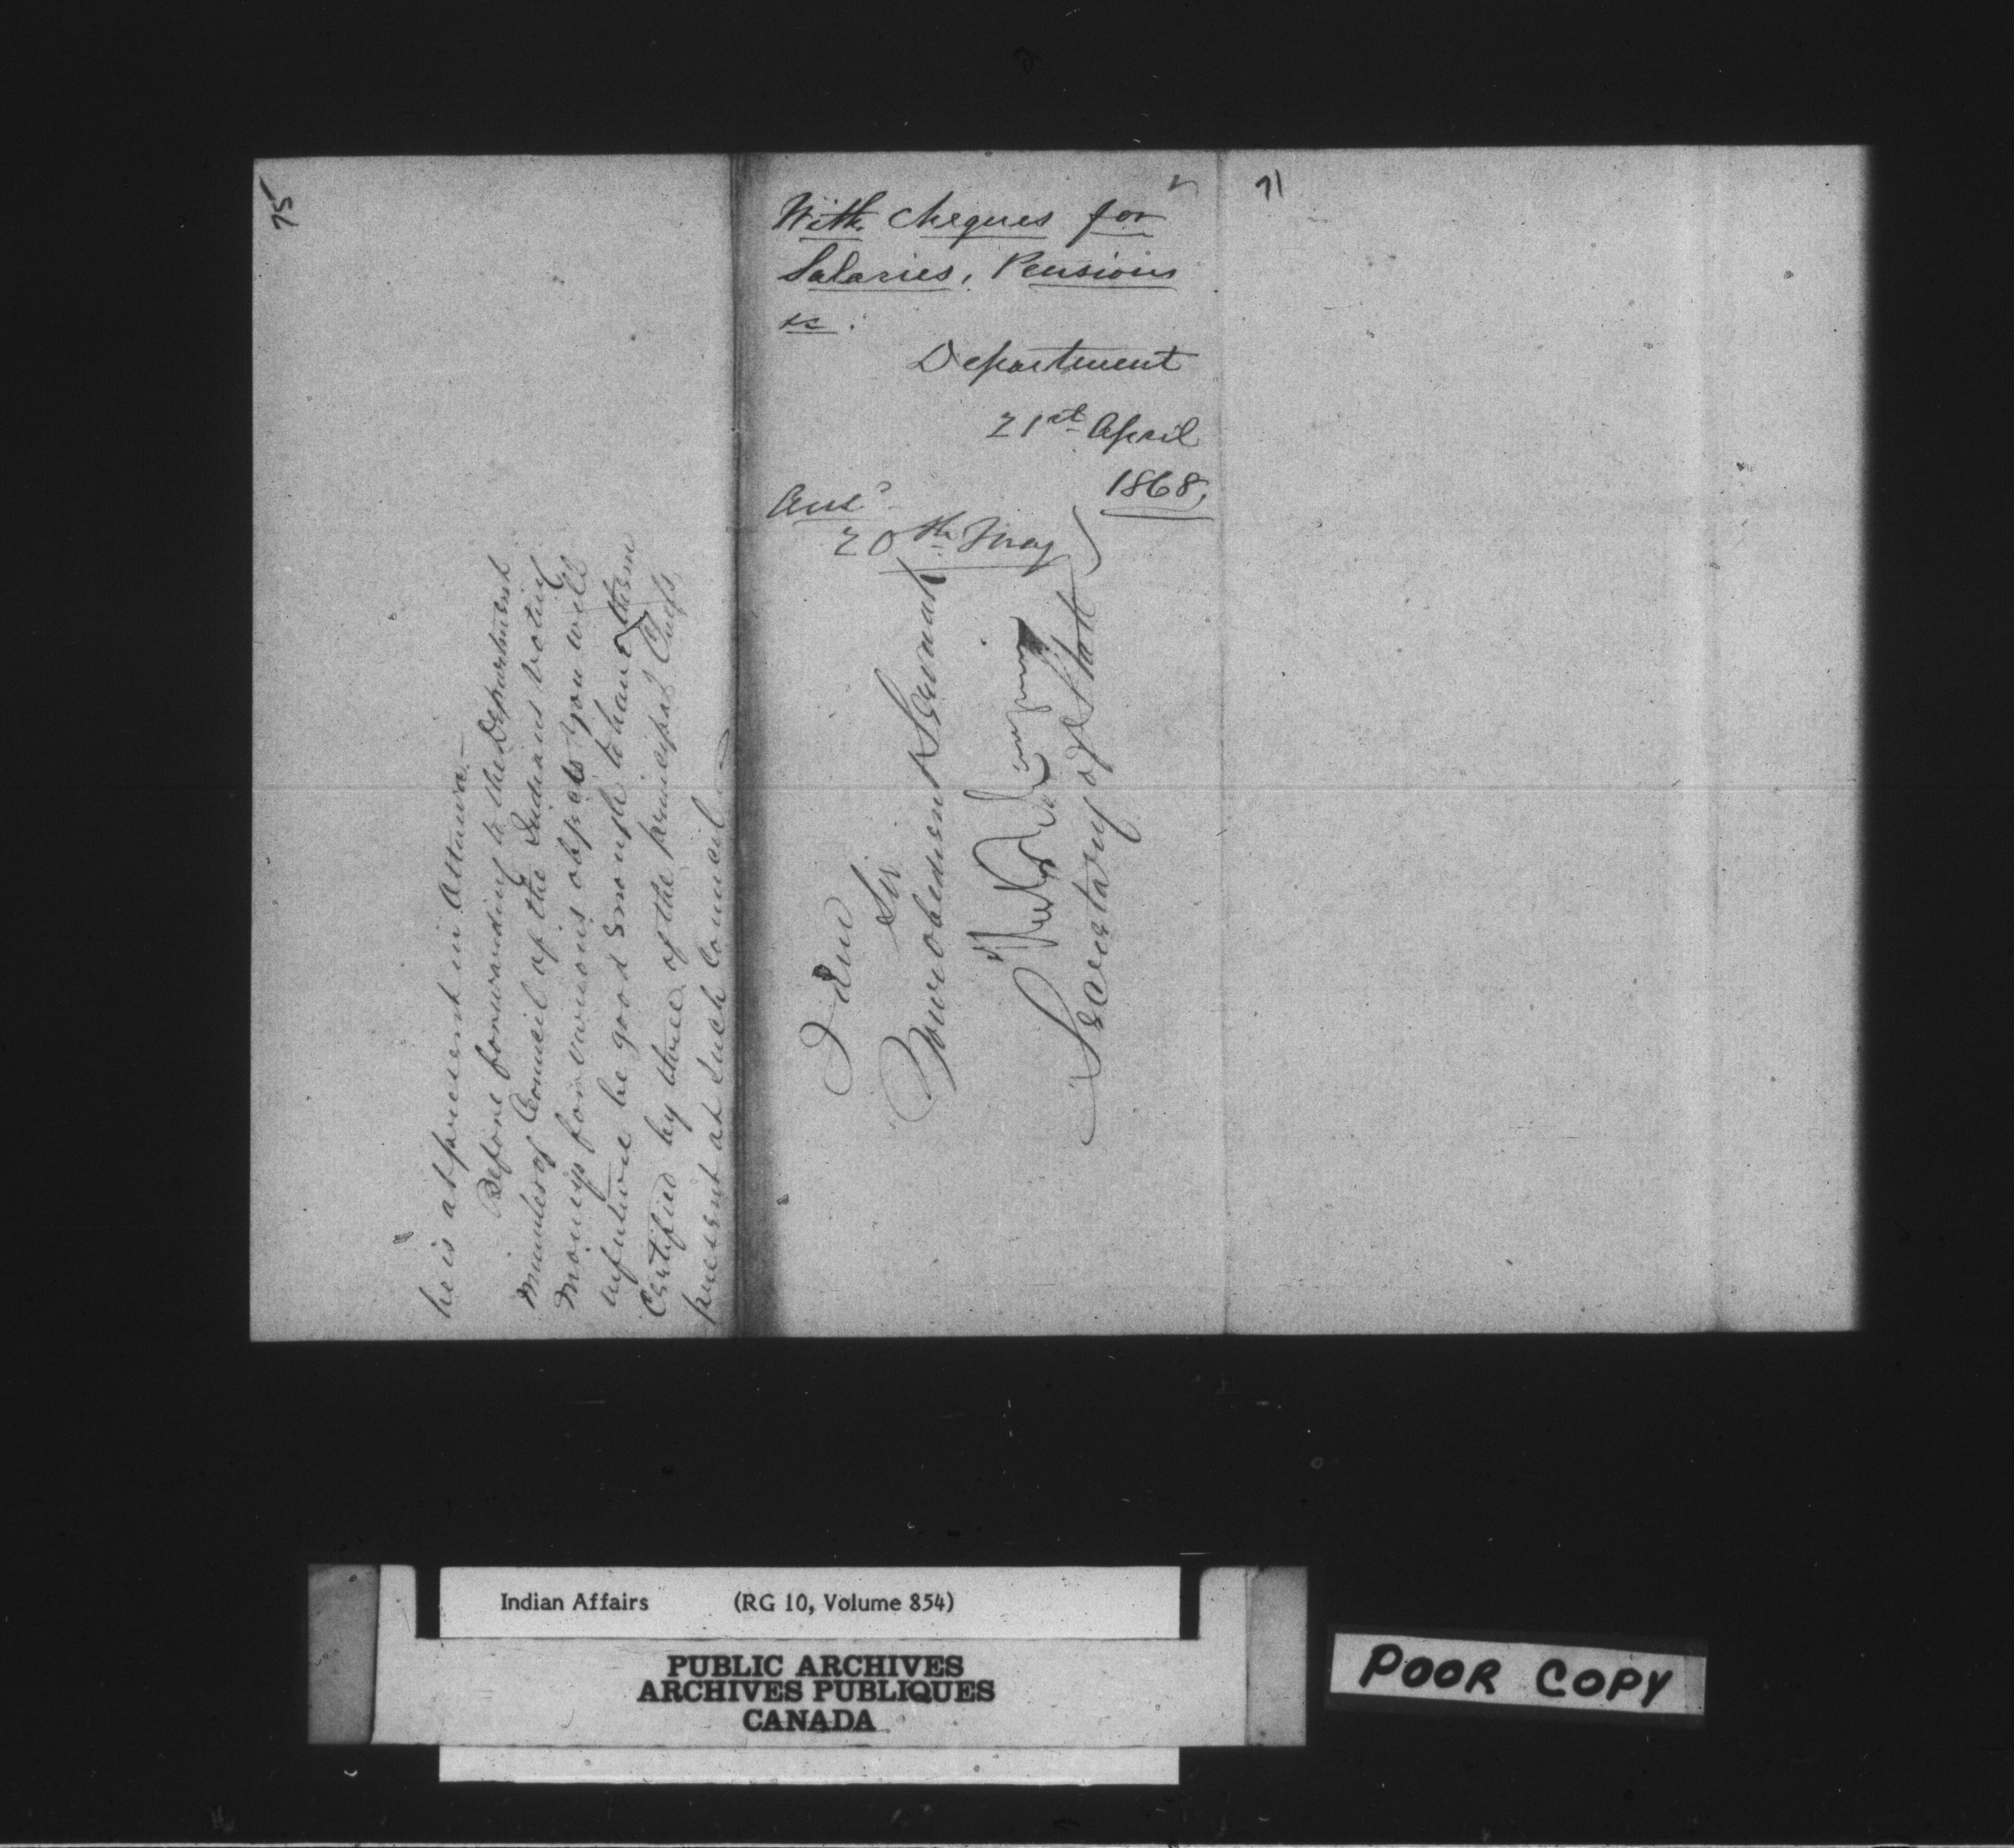 75
he is at present in Ottawa.
Before forwarding to the Department
Minutes of Council of the Indians voting
Moneys for various objects you will
in future be good enough to have them
Certified by three of the principal Chiefs
present at such Council
I am
Sir
Your obedient Servant
Secretary of State
With Cheques for
Salaries, Pensions
&c.
Department
21st April
1868,
Ansd
20th May
71
Indian Affairs (RG 10, Volume 854)
PUBLIC ARCHIVES
ARCHIVES PUBLIQUES
CANADA
POOR COPY